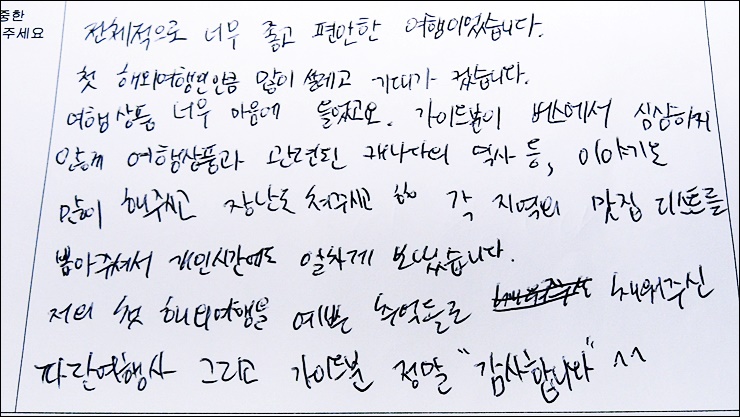 중한
주세요
전체적으로 너무 좋고 편안한 여행이었습니다.
첫 해외여행인만큼 많이 설레고 기대가 컸습니다.
여행상품 너무 마음에 들었고요. 가이드분이 버스에서 심심하지
않게 여행상품과 관련된 캐나다의 역사 등, 이야기도
많이 해주시고 장난도 쳐주시고 각 지역의 맛집 리스트를
뽑아주셔서 개인시간에도 알차게 보냈습니다.
저의 첫 해외여행을 예쁜 추억들로 채워주신
파란여행사 그리고 가이드분 정말 "감사합니다" ^^